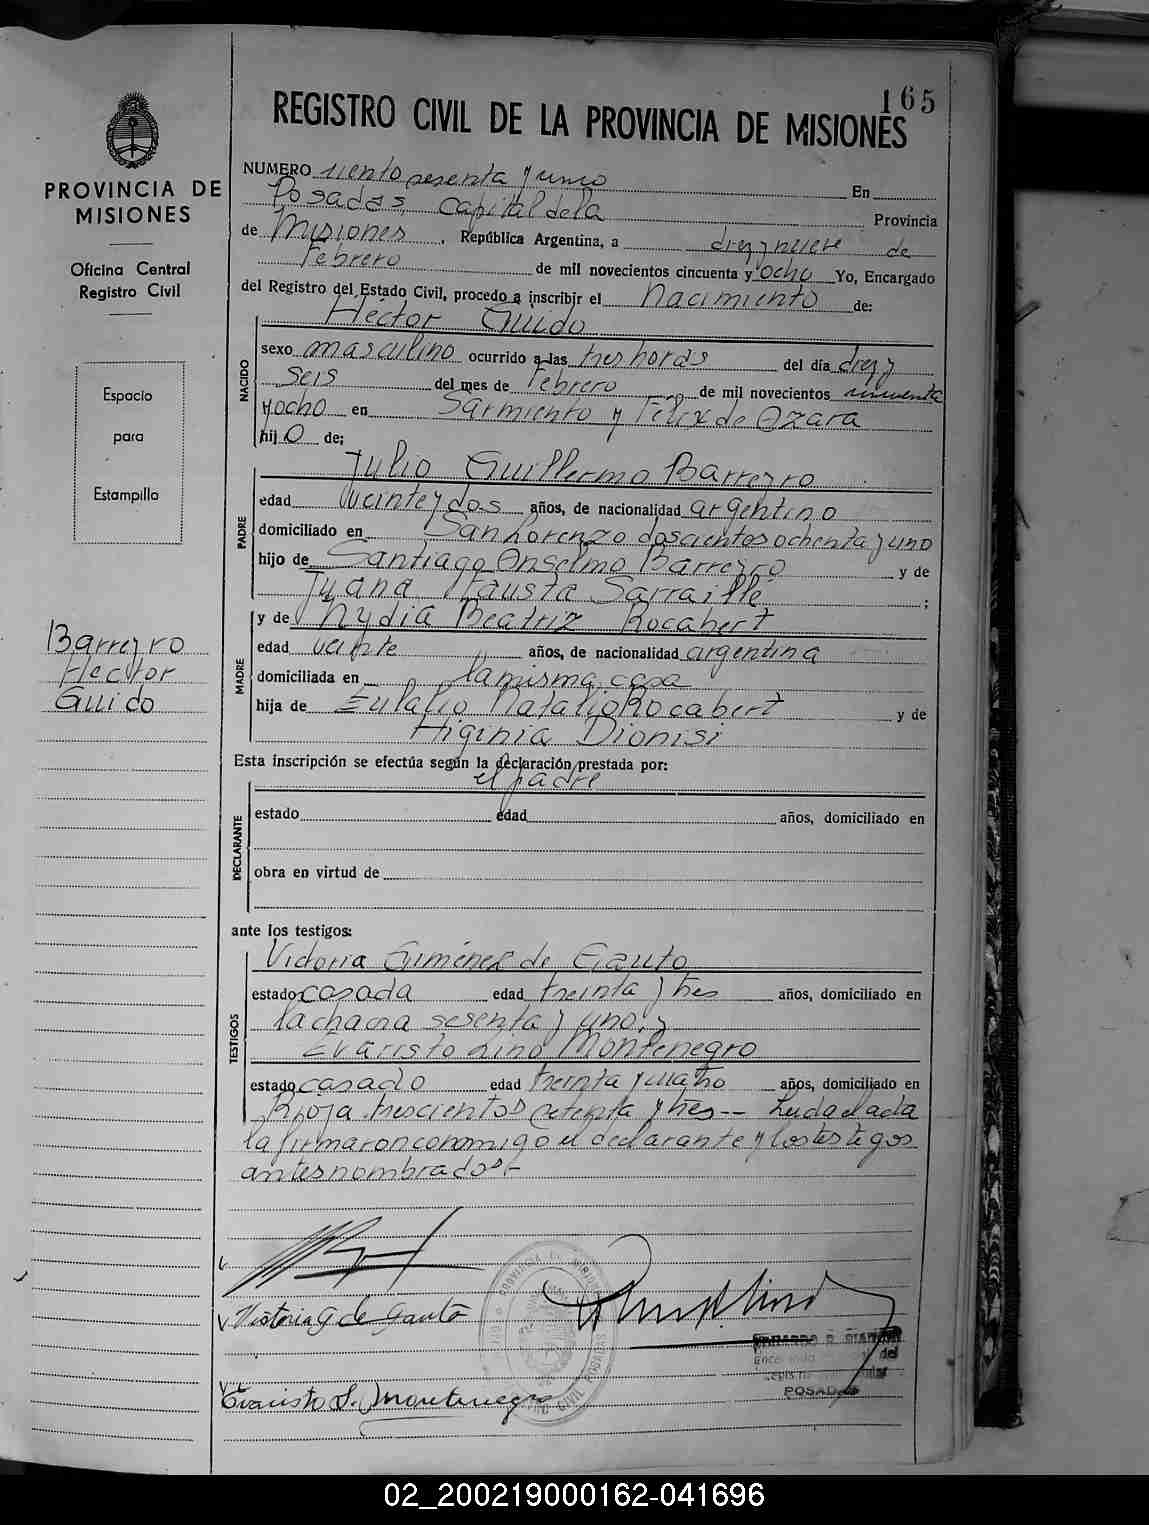 165
REGISTRO CIVIL DE LA PROVINCIA DE MISIONES
PROVINCIA DE
MISIONES
Oficina Central
Registro Civil
Espacio
para
Estampilla
Barreyro
Hector
Guido
NUMERO ciento sesenta y uno En
Posadas, Capital de la Provincia
de Misiones, República Argentina, a diez y nueve de
Febrero de mil novecientos cincuenta y ocho Yo, Encargado
del Registro del Estado Civil, procedo a inscribir el Nacimiento de:
NACIDO
Héctor Guido
sexo masculino ocurrido a las tres horas del día diez y
seis del mes de Febrero de mil novecientos cincuenta
y ocho en Sarmiento y Félix de Azara
hijo de;
PADRE
Julio Guillermo Barreyro
edad veinte y dos años, de nacionalidad argentino
domiciliado en San Lorenzo doscientos ochenta y uno
hijo de Santiago Anselmo Barreyro y de
Juana Fausta Sarraille ;
MADRE
y de Nydia Beatriz Rocabert
edad veinte años, de nacionalidad argentina
domiciliada en la misma casa
hija de Eulalio Natalio Rocabert y de
Higinia Dionisi
Esta inscripción se efectúa según la declaración prestada por:
el padre
DECLARANTE
estado edad años, domiciliado en
obra en virtud de
ante los testigos:
TESTIGOS
Victoria Giménez de Gauto
estado casada edad treinta y tres años, domiciliado en
la chacra sesenta y uno, y
Evaristo Lino Montenegro
estado casado edad treinta y cuatro años, domiciliado en
Rioja trescientos setenta y tres -- Leida el acta
la firmaron conmigo el declarante y los testigos
antes nombrados.-
Victoria G de Gauto
Evaristo L. Montenegro
POSADAS
02_200219000162-041696